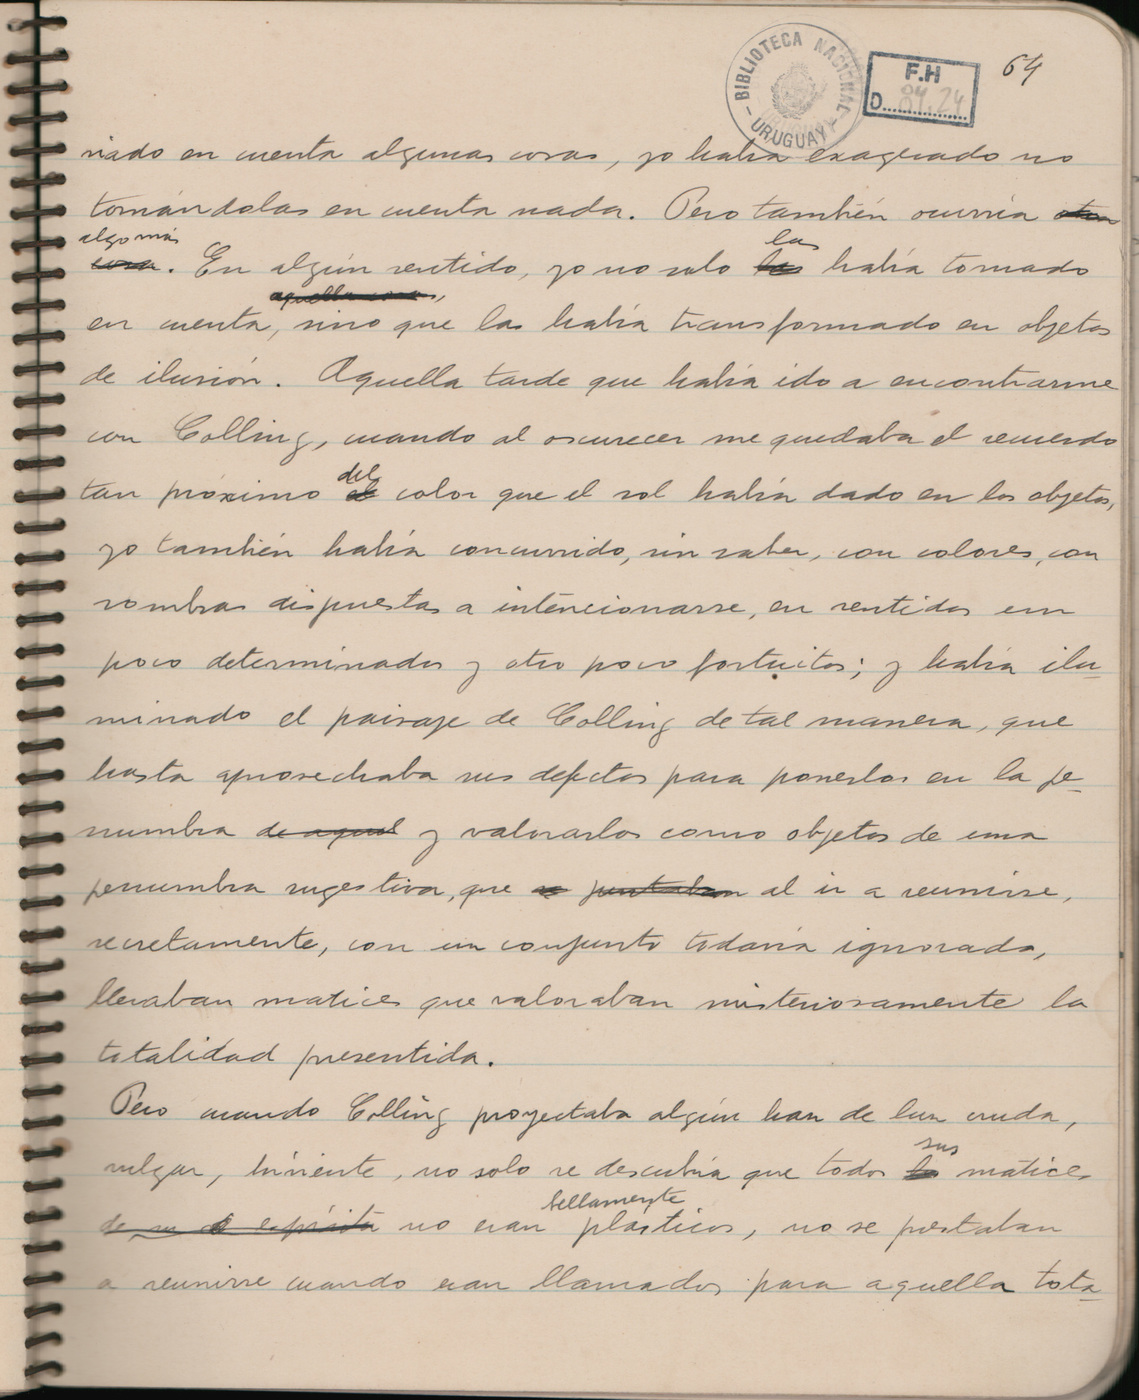 BIBLIOTECA NACIONAL
URUGUAY
F.H
D.....04.24
64
niado en cuenta algunas cosas, yo había exagerado no
tomándolas en cuenta nada. Pero también ocurría otra
algo más
cosa. En algún sentido, yo no solo las había tomado
las
aquellas cosas,
en cuenta, sino que las había transformado en objetos
de ilusión. Aquella tarde que había ido a encontrarme
con Colling, cuando al oscurecer me quedaba el recuerdo
del
tan próximo el color que el sol había dado en los objetos,
yo también había concurrido, sin saber, con colores, con
sombras dispuestas a intencionarse, en sentidos un
poco determinados y otro poco fortuitos; y había ilu-
minado el paisaje de Colling de tal manera, que
hasta aprovechaba sus defectos para ponerlos en la pe-
numbra de aquel y valorarlos como objetos de una
penumbra sugestiva, que se prestaban al ir a reunirse,
secretamente, con un conjunto todavía ignorado,
llevaban matices que valoraban misteriosamente la
totalidad presentida.
Pero cuando Colling proyectaba algún haz de luz cruda,
sus
vulgar, hiriente, no solo se descubría que todos los matices
bellamente
de su espíritu no eran plásticos, no se prestaban
a reunirse cuando eran llamados para aquella tota-